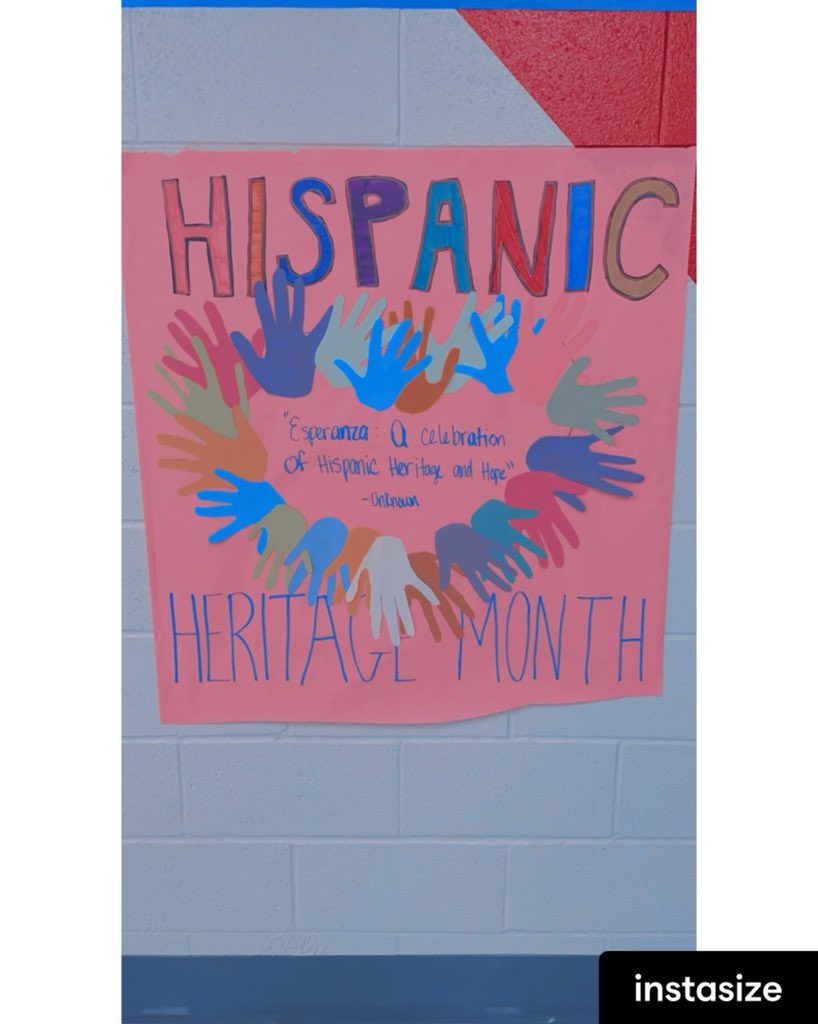 HISPANIC
"Esperanza: A celebration
of Hispanic Heritage and Hope"
-Unknown
HERITAGE MONTH
instasize